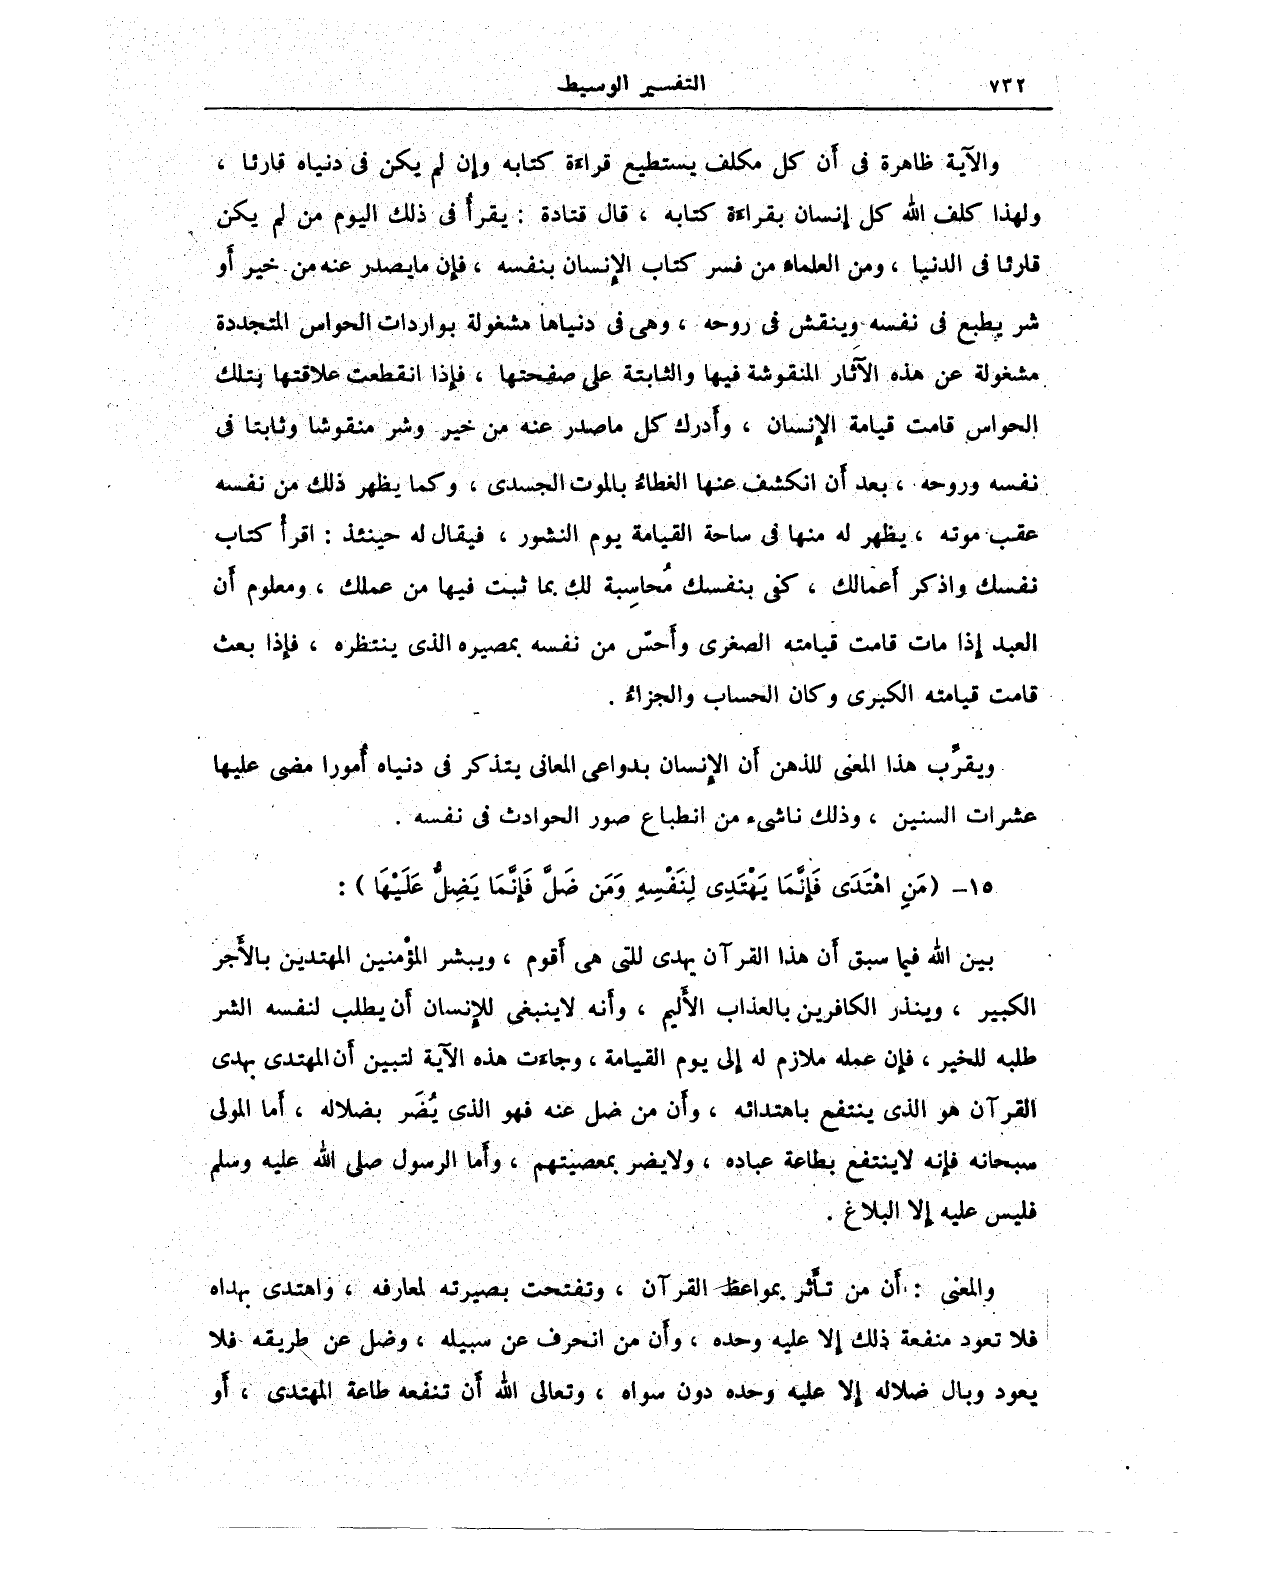 ٧٣٢ التفسير الوسيط
والآية ظاهرة فى أن كل مكلف يستطيع قراءة كتابه وإن لم يكن فى دنياه قارئا ،
ولهذا كلف الله كل إنسان بقراءة كتابه ، قال قتادة : يقرأ فى ذلك اليوم من لم يكن
قارئا فى الدنيا ، ومن العلماء من فسر كتاب الإنسان بنفسه ، فإن مايصدر عنه من خير أو
شر يطبع فى نفسه وينقش فى روحه ، وهى فى دنياها مشغولة بواردات الحواس المتجددة
مشغولة عن هذه الآثار المنقوشة فيها والثابتة على صفحتها ، فإذا انقطعت علاقتها بتلك
الحواس قامت قيامة الإنسان ، وأدرك كل ماصدر عنه من خير وشر منقوشا وثابتا فى
نفسه وروحه ، بعد أن انكشف عنها الغطاءُ بالموت الجسدى ، وكما يظهر ذلك من نفسه
عقب موته ، يظهر له منها فى ساحة القيامة يوم النشور ، فيقال له حينئذ : اقرأ كتاب
نفسك واذكر أعمالك ، كفى بنفسك مُحاسِبة لك بما ثبت فيها من عملك ، ومعلوم أن
العبد إذا مات قامت قيامته الصغرى وأحسّ من نفسه بمصيره الذى ينتظره ، فإذا بعث
قامت قيامته الكبرى وكان الحساب والجزاءُ .
ويقرِّب هذا المعنى للذهن أن الإنسان بدواعى المعانى يتذكر فى دنياه أُمورا مضى عليها
عشرات السنين ، وذلك ناشىء من انطباع صور الحوادث فى نفسه .
١٥- (مَنِ اهْتَدَى فَإِنَّمَا يَهْتَدِى لِنَفْسِهِ وَمَن ضَلَّ فَإِنَّمَا يَضِلُّ عَلَيْهَا ) :
بين الله فيما سبق أن هذا القرآن يهدى للتى هى أقوم ، ويبشر المؤْمنين المهتدين بالأَجر
الكبير ، وينذر الكافرين بالعذاب الأَليم ، وأنه لاينبغى للإنسان أن يطلب لنفسه الشر
طلبه للخير ، فإن عمله ملازم له إلى يوم القيامة ، وجاءت هذه الآية لتبين أن المهتدى بهدى
القرآن هو الذى ينتفع باهتدائه ، وأن من ضل عنه فهو الذى يُضَر بضلاله ، أما المولى
سبحانه فإنه لاينتفع بطاعة عباده ، ولايضر بمعصيتهم ، وأما الرسول صلى الله عليه وسلم
فليس عليه إلا البلاغ .
والمعنى : أن من تأَثر بمواعظ القرآن ، وتفتحت بصيرته لمعارفه ، واهتدى بهداه
فلا تعود منفعة ذلك إلا عليه وحده ، وأن من انحرف عن سبيله ، وضل عن طريقه فلا
يعود وبال ضلاله إلا عليه وحده دون سواه ، وتعالى الله أن تنفعه طاعة المهتدى ، أو